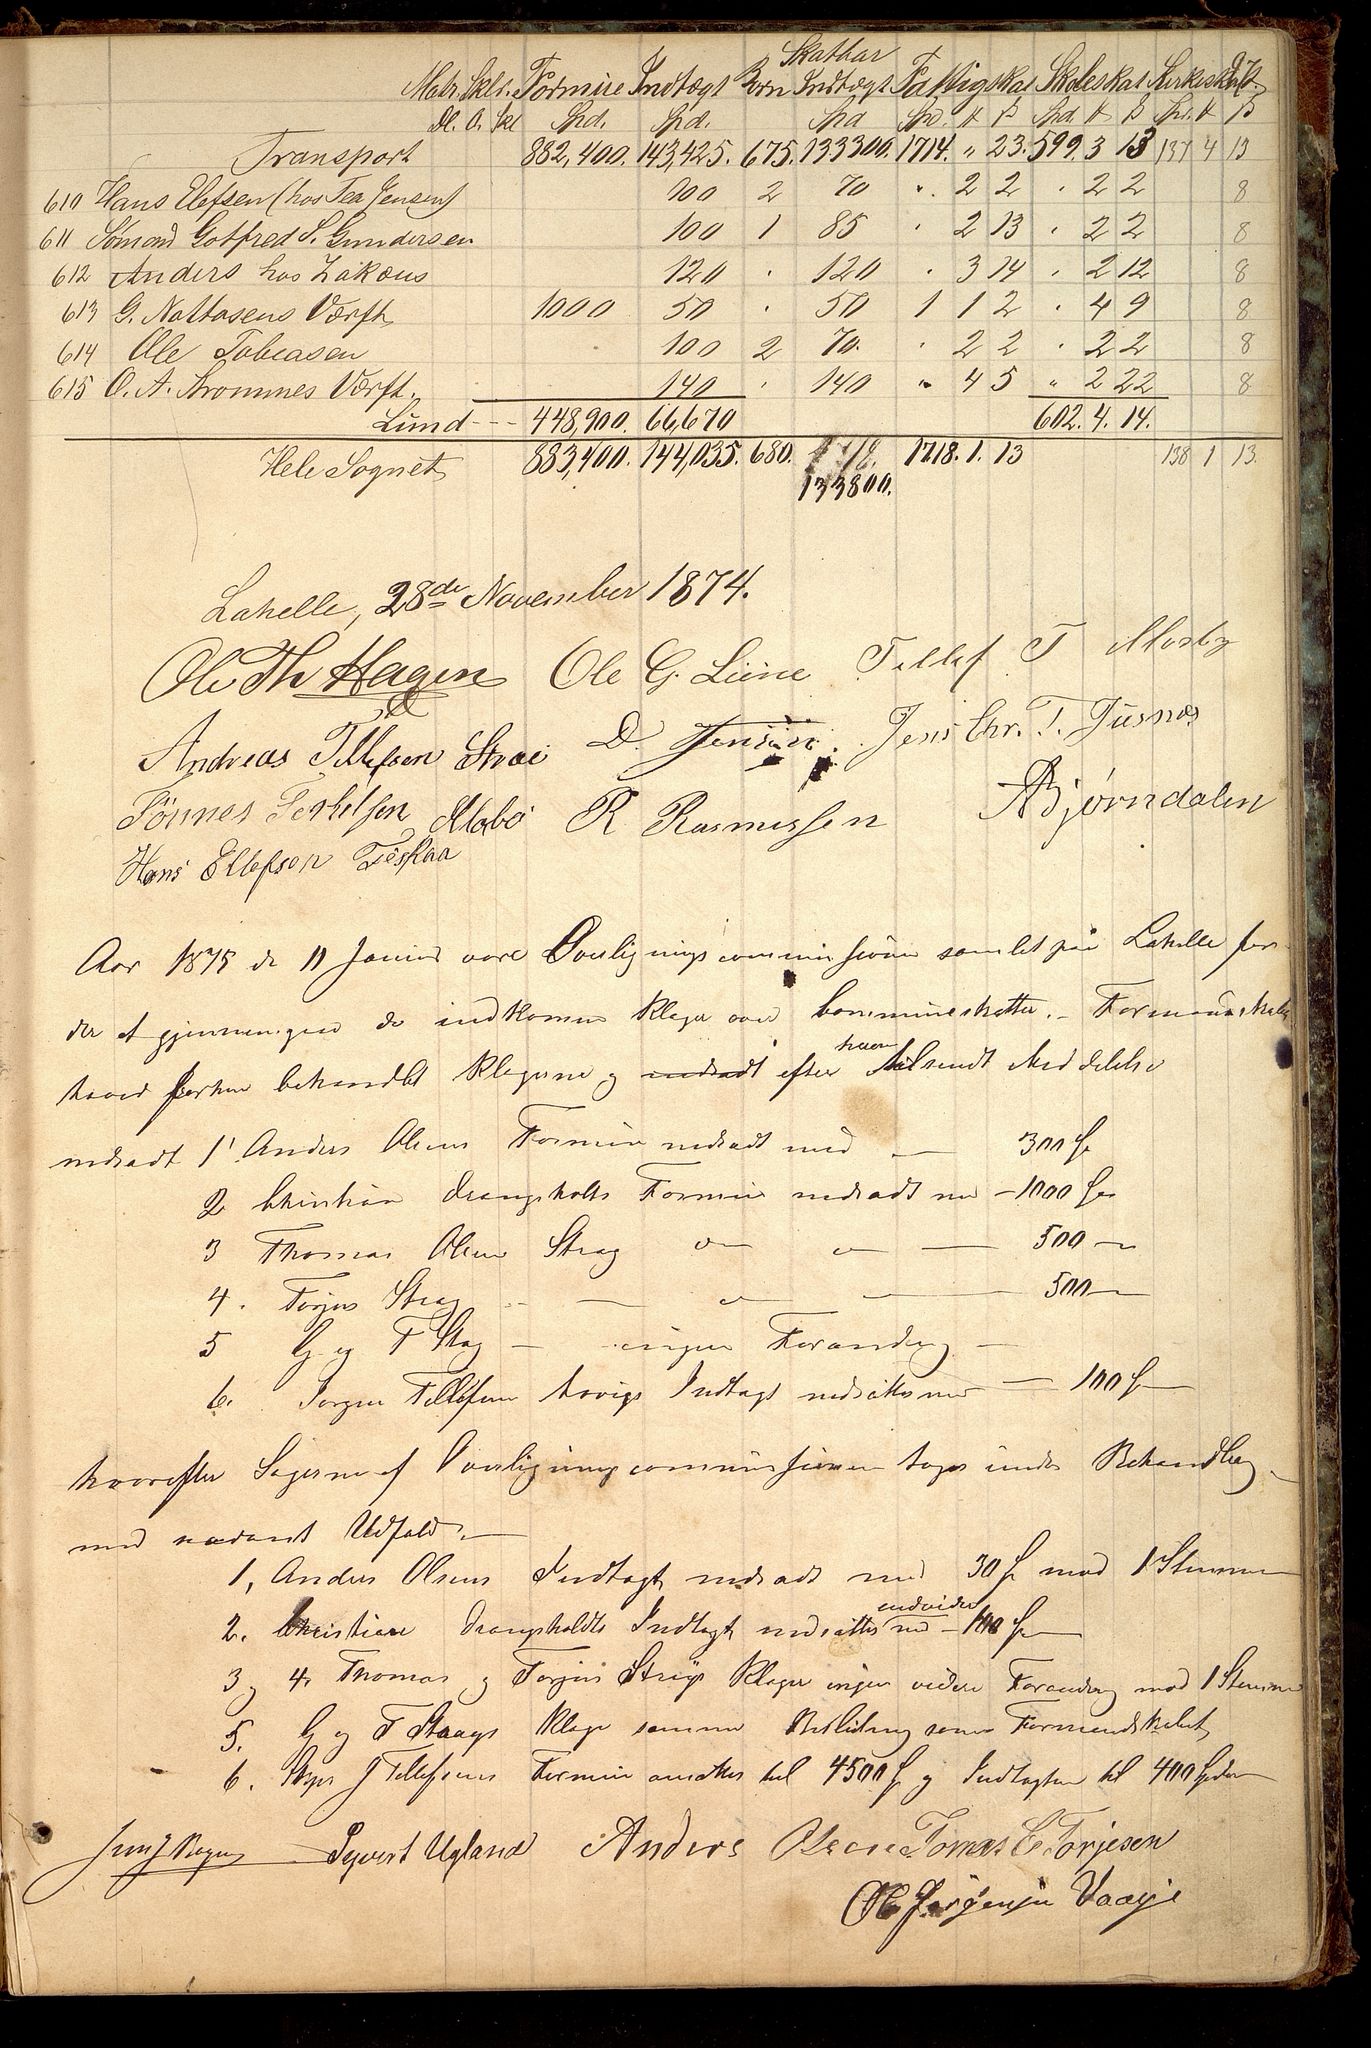 Skatbar
Matr. Skld. Formue Indtægt Børn Indtægt Fattigskat Skoleskat Kirkeskat
Dl. O. Skl Spd. Spd. Spd Spd. # ß Spd. # ß Spd. # ß
Transport 882,400. 143,425. 675. 133300. 1714. " 23. 599. 3 13 137 4 13
610 Hans Elefsen (hos Tea Jensen) 100 2 70 " 2 2 " 2 2 8
611 Sømand Gotfred S. Gundersen 100 1 85 " 2 13 " 2 2 8
612 Anders hos Zakæus 120 " 120 " 3 14 " 2 12 8
613 G. Nattasens Værft 1000 50 " 50 1 1 2 " 4 9 8
614 Ole Tobiasen 100 2 70 " 2 2 " 2 2 8
615 O. A. Strømmes Værft. 140 " 140 " 4 5 " 2 22 8
Lund --- 448,900. 66,670 602. 4. 14.
Hele Sognet 883,400. 144,035. 680. 1718. 1. 13 138 1 13.
133800.
Lahelle, 28de November 1874.
Ole Th Hagen Ole G. Liene Tellef T Mosby
Andreas Tellefsen Strai D. Jensen. Jens Chr. T. Jusnæs
Tönnes Terkelsen Mabø R Rasmussen ABjørndalen
Hans Ellefson Fiskaa
Aar 1875 de 11 Januar vare Overligningscommissionen samlet paa Lahelle for
der at gjennemgaa de indkomne Klager over Communeskatten. - Formandskabet
havde forhen behandlet Klagerne og nedsadt efter haver tilsendt Meddelelse
nedsadt 1' Anders Olsens Formue nedsadt med — 300 Sp
2 Christian Drangsholts Formue nedsadt med - 1000 Sp
3 Thomas Olsen Strag " " — 500 —
4. Torjus Strag — " — 500 —
5 G og T Stag — ingen Forandring —
6. Jørgen Tellefsens Indtægt nedsættes med — 100 Sp
hvorefter Sagerne af Overligningscommissionen toges under Behandling
med saadant Udfald. —
1, Anders Olsens Indtægt nedsadt med 30 Sp mod 1 Stemme
2. Christian Drangsholdts Indtægt nedsættes endvidere med - 100 Sp
3 og 4. Thomas og Torjus Strags Klager ingen videre Forandring mod 1 Stemme
5. G og T Staags Klage samme Beslutning som Formandskabet
6. J Tellefsens Formue ansættes til 4500 Sp og Indtægten til 400 Spdr
Syvert Ugland Anders Olsen Tomas C. Torjesen
Ole Jørgensen Vaagе